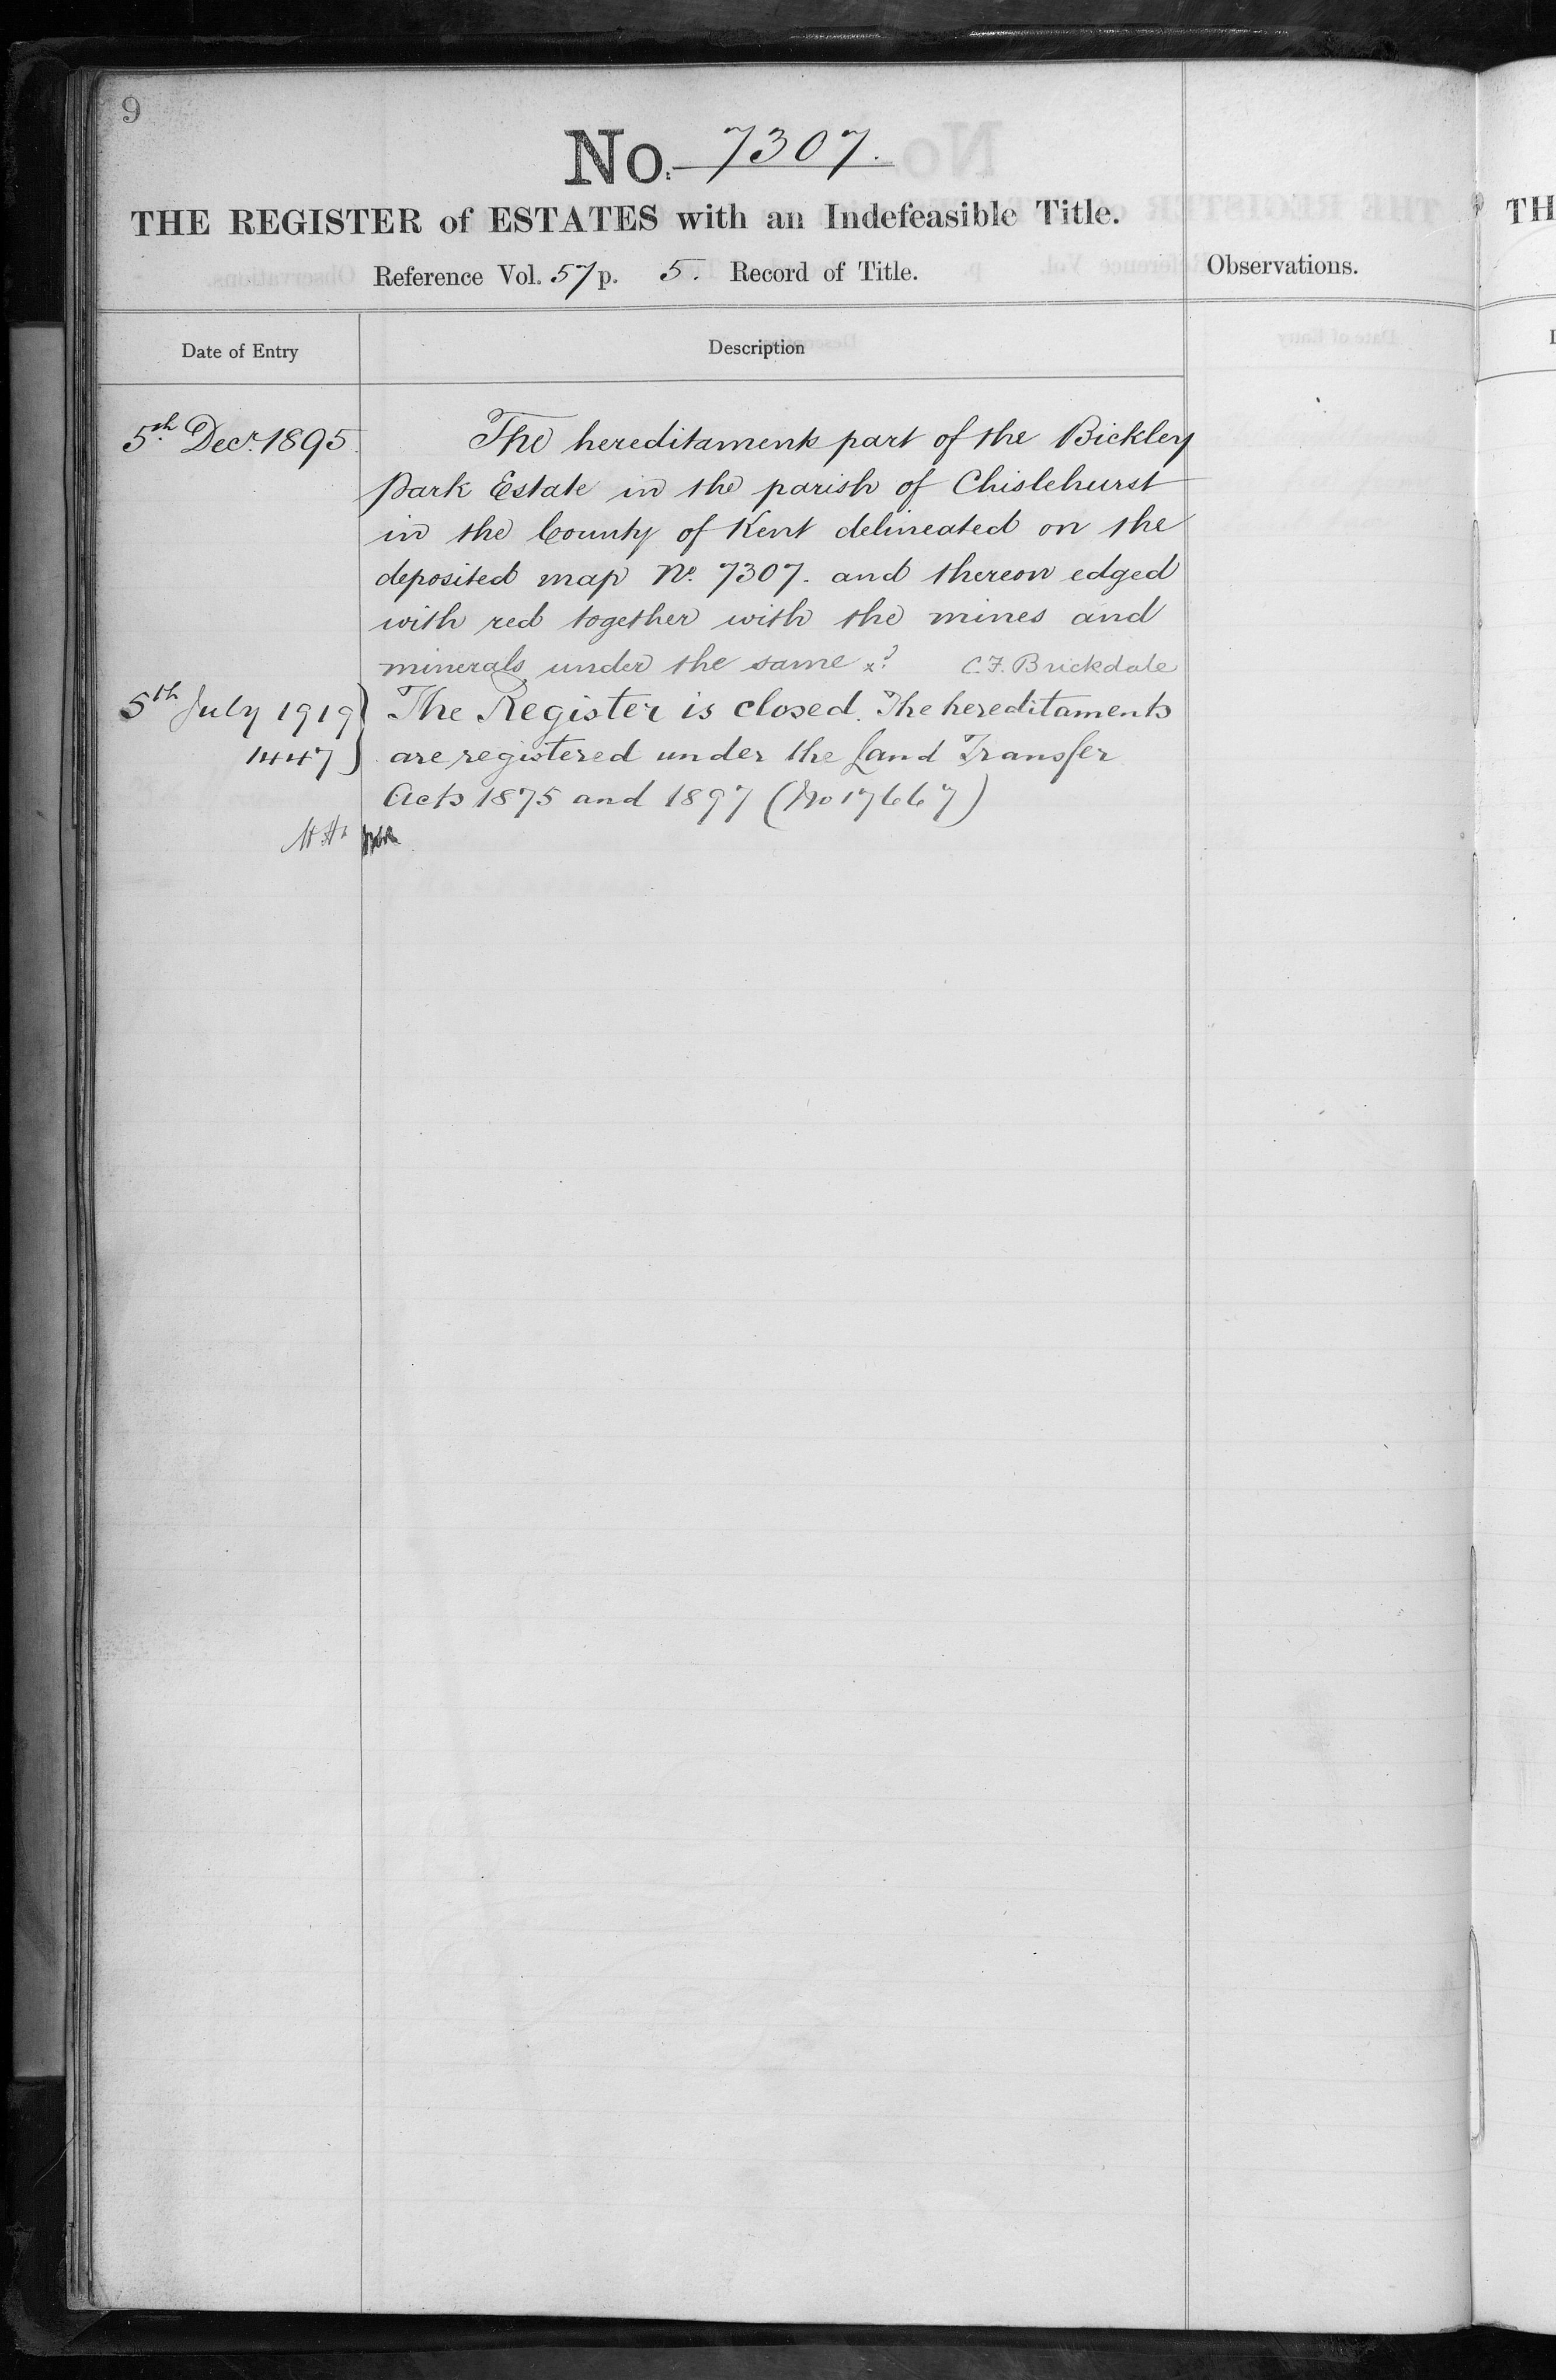 9
No. 7307.
THE REGISTER of ESTATES with an Indefeasible Title.
Reference Vol. 57 p. 5. Record of Title.
Observations.
Date of Entry
Description
5th Decr. 1895.
The hereditaments part of the Bickley
Park Estate in the parish of Chislehurst
in the County of Kent delineated on the
deposited map No. 7307. and thereon edged
with red together with the mines and
minerals under the same x? C.F. Brickdale
5th July 1919 } The Register is closed. The hereditaments
1447 } are registered under the Land Transfer
Acts 1875 and 1897 (No 17667)
TH